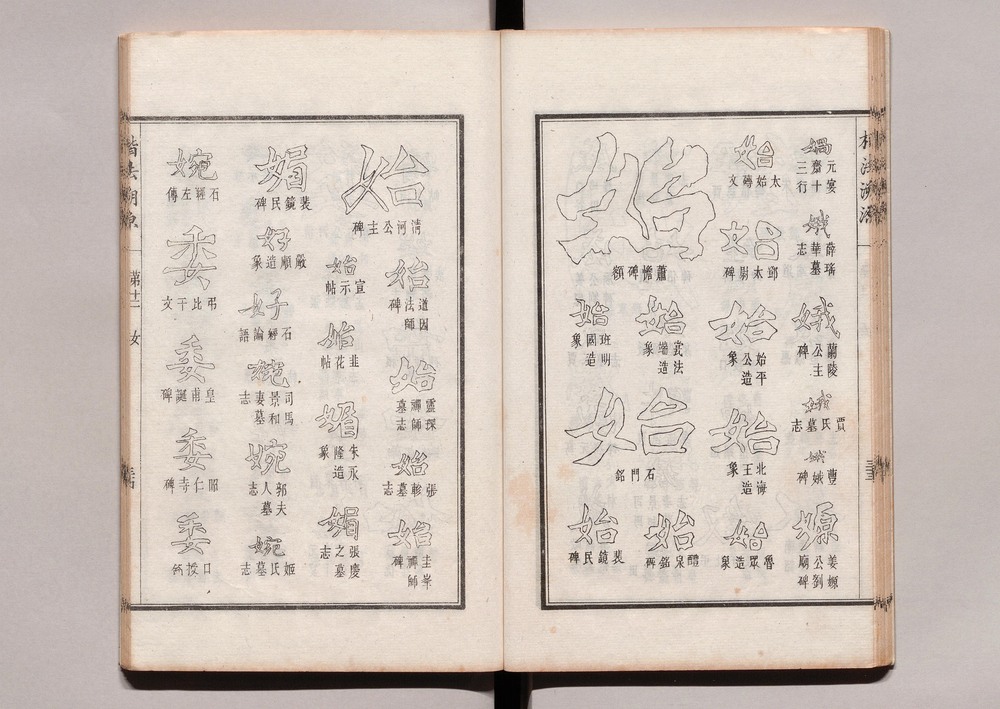 楷法溯源
媧
元宴
齋十
三行
娥
薛瑤
華墓
志
娥
蘭陵
公主
碑
娥
賈氏墓志
娥
娥碑
嫄
姜嫄
公劉
廟碑
始
太始磚文
始
邱太尉碑
始
始平
公造
象
始
北海
王造
象
始
魯眾造象
始
蕭憺碑額
始
武法
端造
象
始
班明
國造
象
始
石門銘
始
醴泉銘碑
始
裴鏡民碑
始
清河公主碑
始
道因
法師
碑
始
靈琛
禪師
墓志
始
張軫墓志
始
圭峯
禪師
碑
始
宣示帖
始
韭花帖
媚
朱永
隆造
象
娟
張慶
之墓
志
媚
裴鏡民碑
好
嚴順造象
好
石經論語
婉
司馬
景和
妻墓
志
婉
郭夫
人墓
志
婉
姬氏墓志
婉
石經左傳
委
弔比干文
委
皇甫誕碑
委
昭仁寺碑
委
口授銘
楷法溯原
第十二
女